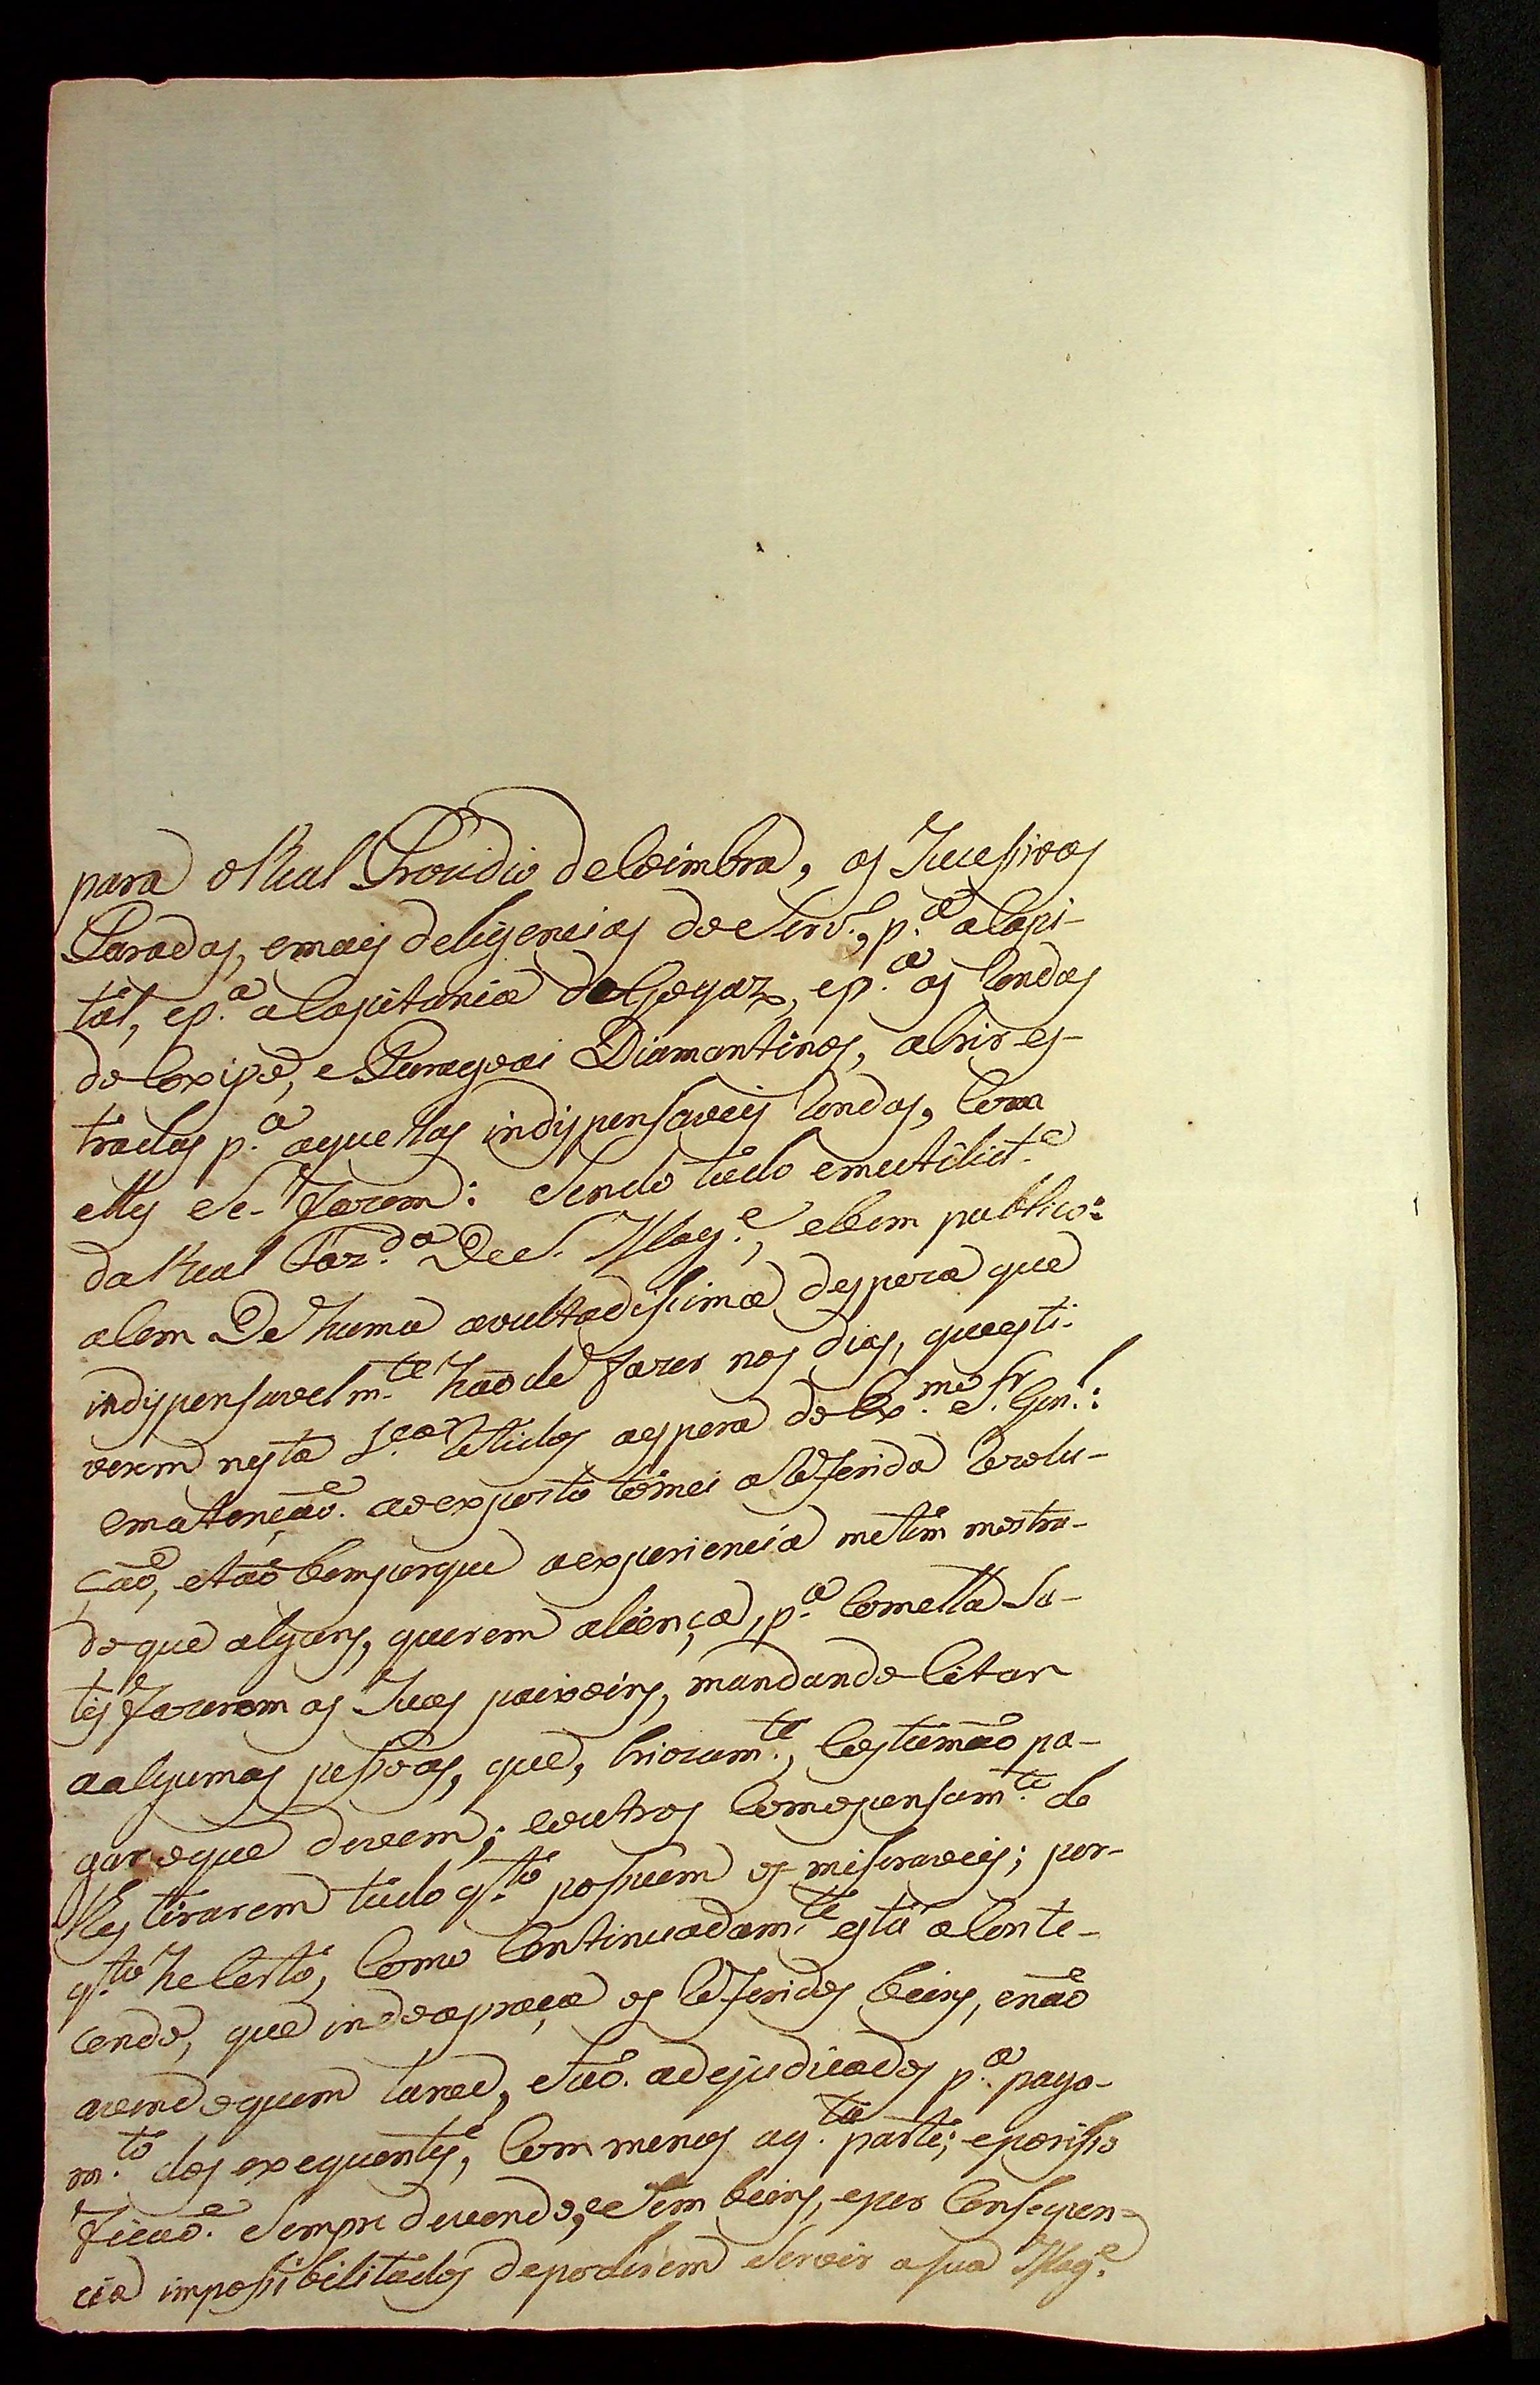 para o Real Prezidio de Coimbra, as Sucessivas
Paradas, e mais deligencias do Serv.º, p.ª a Capi-
tal, e p.ª a Capitania de Goyaz, e p.ª as Rondas
do Coxipó, e Paragoai Diamantinos, abrir es-
tradas p.ª aquellas indispensaveis Rondas, Com
elles Se- fazem: Sendo tudo em utilid.e
da Real Faz.da De S. Mag.e, e bem publico:
alem De huma avultadissima despeza que
indispensavelm.te hão de fazer nos dias, que esti-
verem nesta retidos a espera do Ex.mo S.r Gen.l:
em atenção ao exposto tomei a Referida Rezolu-
ção, e tão bem porque a experiencia me tem mostra-
do que alguns, querem a licença, p.ª Com ella Sa-
tisfazerem as Suas paixoins, mandando Citar
a algumas pessoas, que, briozam.te, Costumão pa-
gar o que devem; e outros Com o pensam.to de
lhes tirarem tudo q.to possuem os miseraveis; por-
q.to he Certo, Como Continuadam.te está aConte-
cendo, que indo a praça os Referidos beins, e não
avendo quem lance, São adejudicados p.ª paga-
m.to dos exequentes, Com menos a q.ta parte; e por isso
Ficão Sempre devendo, e Sem beins, e por Consequen-
cia impossibilitados de poderem Servir a Sua Mag.e